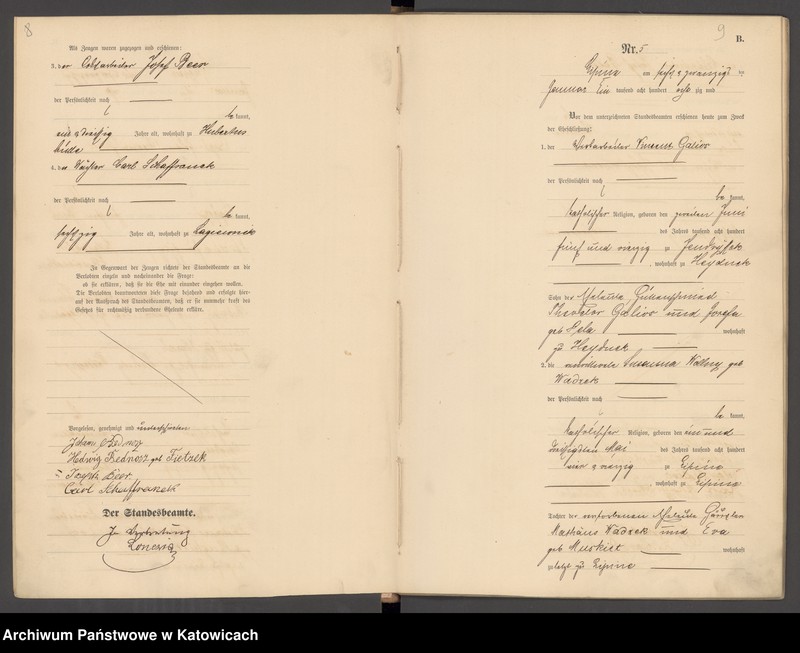 8
Als Zeugen waren zugezogen und erschienen:
3. der Josef Beer
der Persönlichkeit nach
be kannt,
ein u dreißig Jahre alt, wohnhaft zu Hubertus
hütte
4. der Wächter Carl Schaffranek
der Persönlichkeit nach
be kannt,
sechszig Jahre alt, wohnhaft zu Lagiewnik
In Gegenwart der Zeugen richtete der Standesbeamte an die
Verlobten einzeln und nacheinander die Frage:
ob sie erklären, daß sie die Ehe mit einander eingehen wollen.
Die Verlobten beantworteten diese Frage bejahend und erfolgte hier-
auf der Ausspruch des Standesbeamten, daß er sie nunmehr kraft des
Gesetzes für rechtmäßig verbundene Eheleute erkläre.
Vorgelesen, genehmigt und unterschrieben
Johann Bednorz
Hedwig Bednorz geb Fietzek
Joseph Beer
Carl Schaffranek
Der Standesbeamte.
In Vertretung
9
B.
Nr. 5
Lipine am sechs u zwanzigsten
Januar Ein tausend acht hundert zig und
Vor dem unterzeichneten Standesbeamten erschienen heute zum Zweck
der Eheschließung:
1. der Vincent Galior
der Persönlichkeit nach
be kannt,
katholischer Religion, geboren den zweiten Juni
des Jahres tausend acht hundert
fünf und vierzig zu
, wohnhaft zu Heyduck
Sohn der Eheleute
Theodor Galior und Josefa
geb Hela wohnhaft
zu Heyduck
2. die verwittwete Susanna geb
Wadzek
der Persönlichkeit nach
be kannt,
katholischer Religion, geboren den ein und
dreißigsten Mai des Jahres tausend acht hundert
vier u vierzig zu Lipine
, wohnhaft zu Lipine
Tochter der verstorbenen Eheleute Häusler
Mathäus Wadzek und Eva
geb Muskiet wohnhaft
zuletzt zu Lipine
Archiwum Państwowe w Katowicach